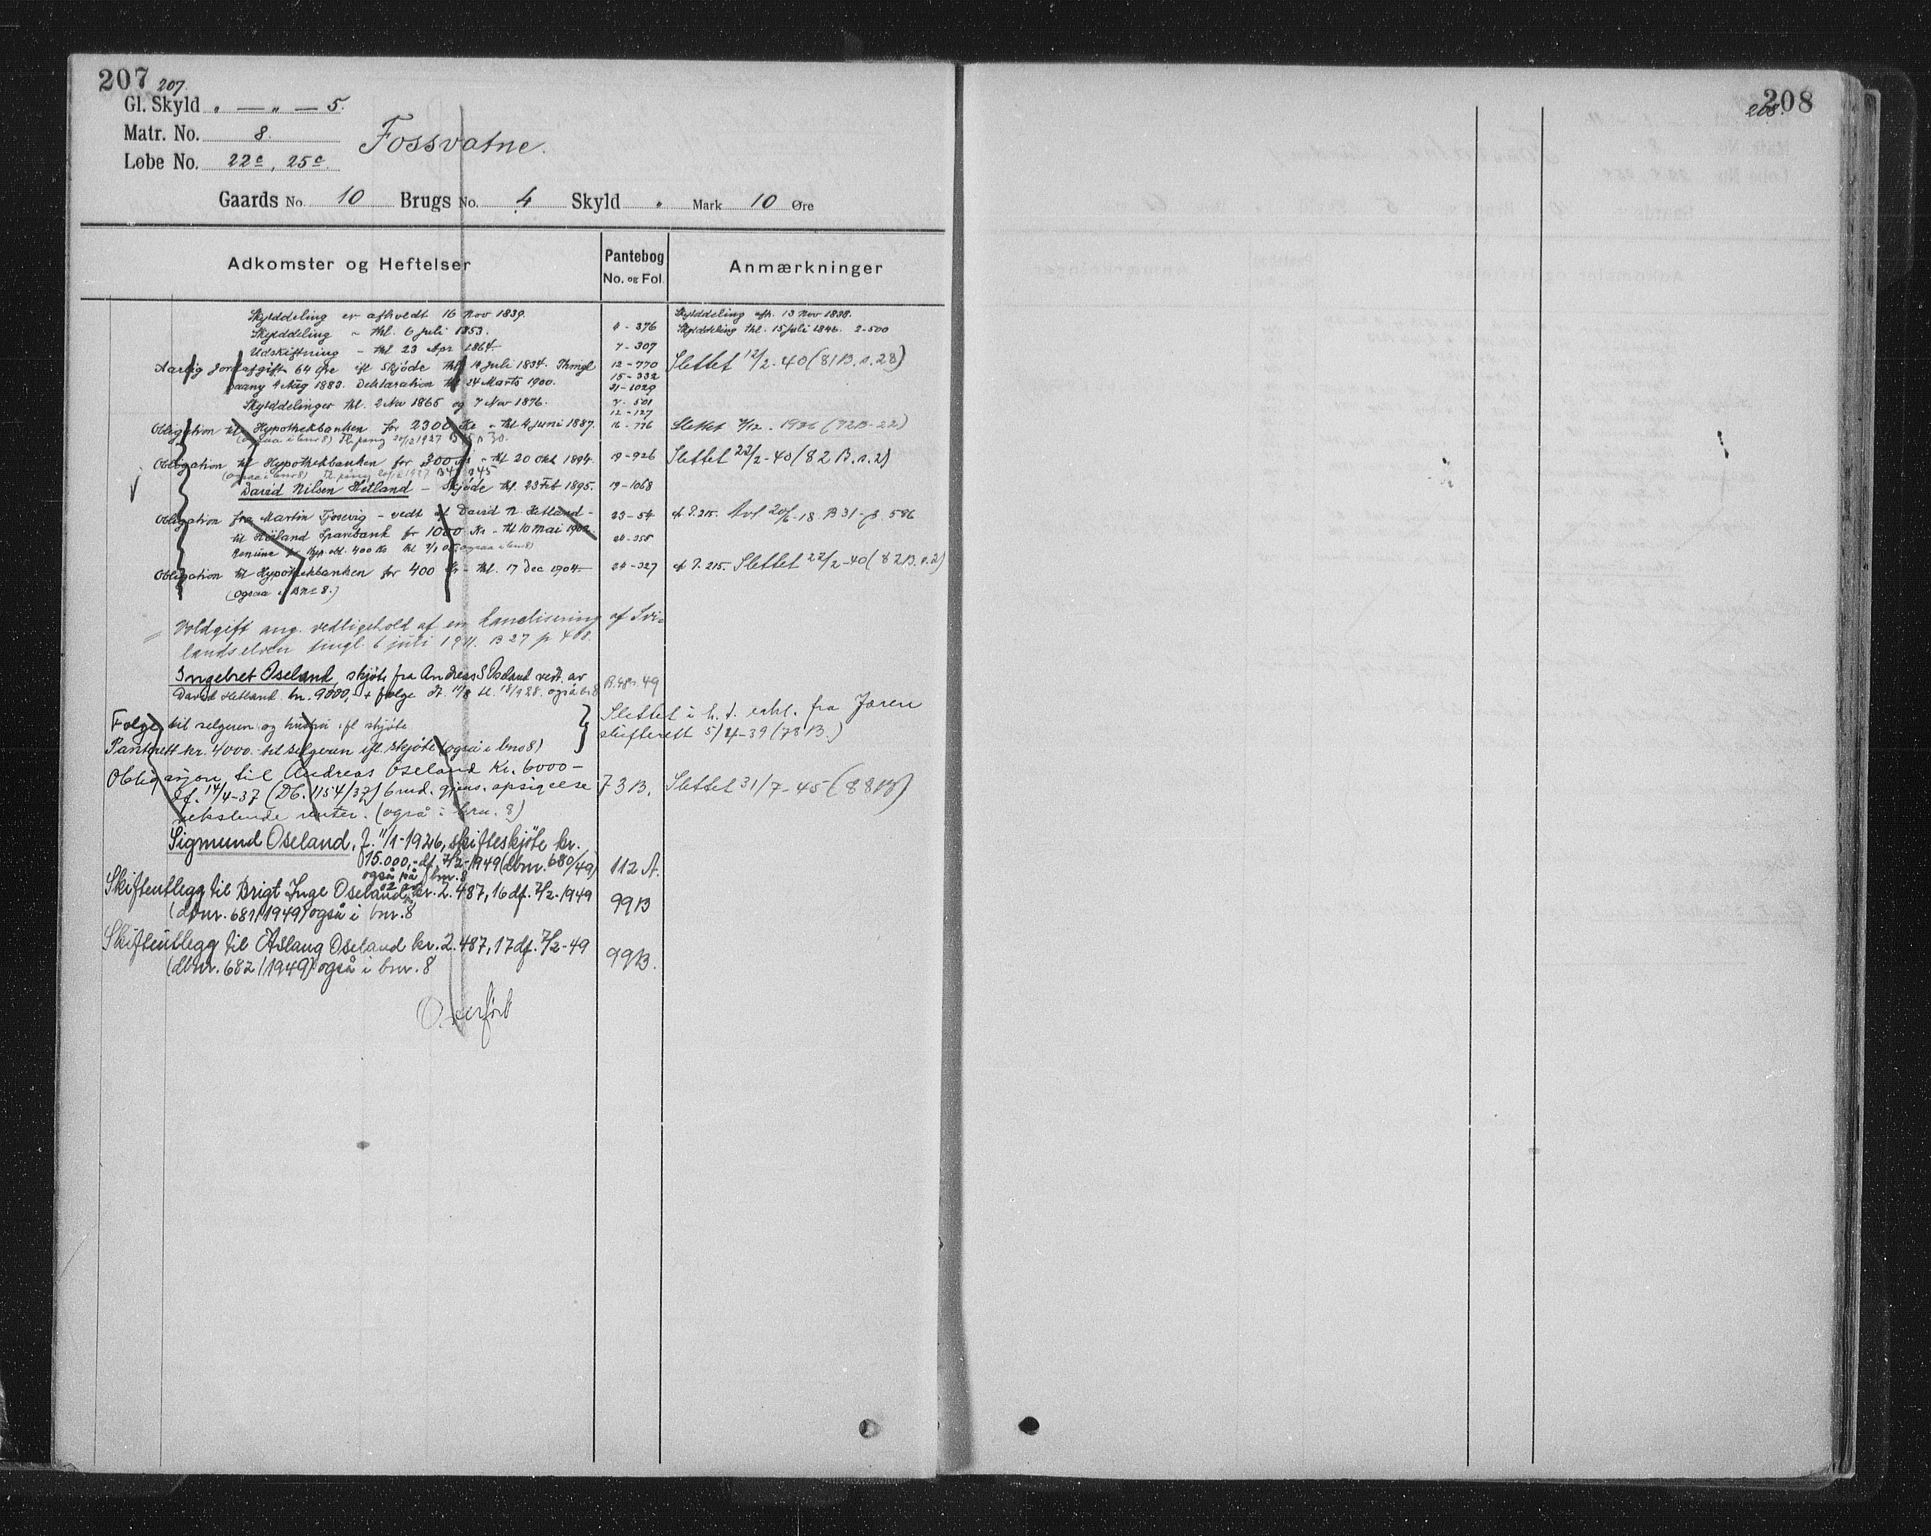 207 207.
Gl. Skyld „ — „ — 5.
Matr. No. 8.
Løbe No. 22c, 25c
Fossvatne.
Gaards No. 10 Brugs No. 4 Skyld „ Mark 10 Øre
Adkomster og Heftelser Pantebog No. og Fol. Anmærkninger
Skylddeling er afhvedt 16 Nov 1839. Skylddeling afh. 13 Nov 1838.
Skylddeling - thl. 6 Juli 1853. 4-376 Skylddeling thl. 15 Juli 1846. 2-500
Udskiftning - thl 23 Apr 1864. 7-307
Aarlig Jordafgift 64 Øre ifl Skjøde thl 19 Juli 1834. Thingl 12-770 Slettet 12/2-40 (81B.s.28)
paany 4 Aug 1883. Deklaration thl 24 Marts 1900. 15-332
21-1029
Skylddelinger thl. 2 Nov 1865 og 7 Nov 1876. 7-501
12-127
Obligation til Hypothekbanken for 2300 Kr - thl 4 Juni 1887. 16-776 Slettet 1936 (72B-22)
(ogsaa i bnr 8)
Obligation til Hypothekbanken for 300 Kr - thl 20 Okt 1894. 19-926 Slettet 22/2-40 (82B.s.2)
(ogsaa i bnr 8)
David Nilsen Hetland - Skjøde thl. 23 Feb 1895. 19-1068
Obligation fra Martin Fjosevig - vedt af David N. Hetland - 23-54 cf P.215. 20/6-18 B31-p.586
til Høiland Sparebank for 1000 Kr - thl 10 Mai 1902 24-255
400 Kr (ogsaa i bnr 8)
Obligation til Hypothekbanken for 400 Kr - thl. 17 Dec 1904. 24-327 cf P.215. Slettet 22/2-40 (82B.s.2)
(ogsaa i BNr 8.)
Voldgift ang. vedligehold af en kanalisering af Svi-
landselven tingl. 6 juli 1911. B 27 p 408.
Ingebret Oseland, skjøte fra Andreas S Oseland vedt. av B.48 s 49
David Hetland kr. 9000,- + følge dt. 17/8 tl. 18/8 28. også bnr 8
Følge til selgeren og hustru ifl skjøte } Slettet i h. t. erkl. fra Jæren
Panterett kr. 4000.- til selgeren ifl. skjøte (også i bno 8) skifterett 5/4-39 (78B.)
Obligasjon til Andreas Oseland Kr. 6000-
df. 14/4-37 (Db. 1154/37) 6 mnd. gjens. opsigelse 73B. Slettet 31/7-45 (88B)
vekslende renter. (også i bnr. 8)
Sigmund Oseland, f. 11/1-1926, skifteskjøte kr.
15.000,- df. 7/2-1949 (dbnr. 680/49) 112 A.
også på bnr. 8
Skifteutlegg til Brigt Inge Oseland kr. 2.487,16 df. 7/2-1949
(dbnr. 681/1949) også i bnr. 8 99B
Skifteutlegg til Åslaug Oseland kr. 2.487,17 df. 7/2-49
(dbnr. 682/1949) også i bnr. 8 99B.
Overført
208 208.